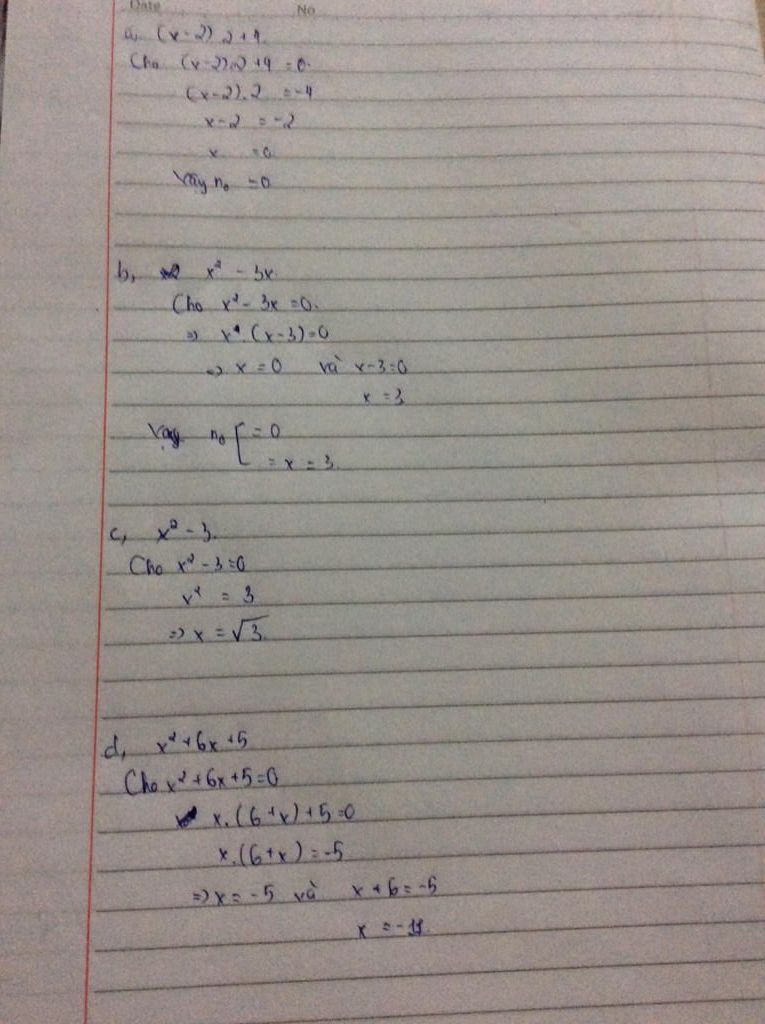 Date No
a, (x-2).2+4.
Cho (x-2).2+4 =0.
(x-2).2 =-4
x-2 =-2
x =0
Vậy n₀ =0
b, x² - 3x.
Cho x²- 3x =0.
=> x.(x-3)=0
=> x =0 và x-3=0
x =3
Vậy n₀ [ =0
= x = 3
c, x² - 3.
Cho x² -3=0
x² = 3
=> x = √3
d, x²+6x+5
Cho x²+6x+5=0
x.(6+x)+5=0
x.(6+x)=-5
=> x = -5 và x+6=-5
x =-11